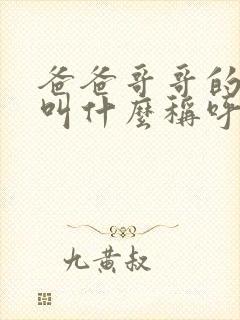 爸爸哥哥的
叫什麼稱呼
九黄叔